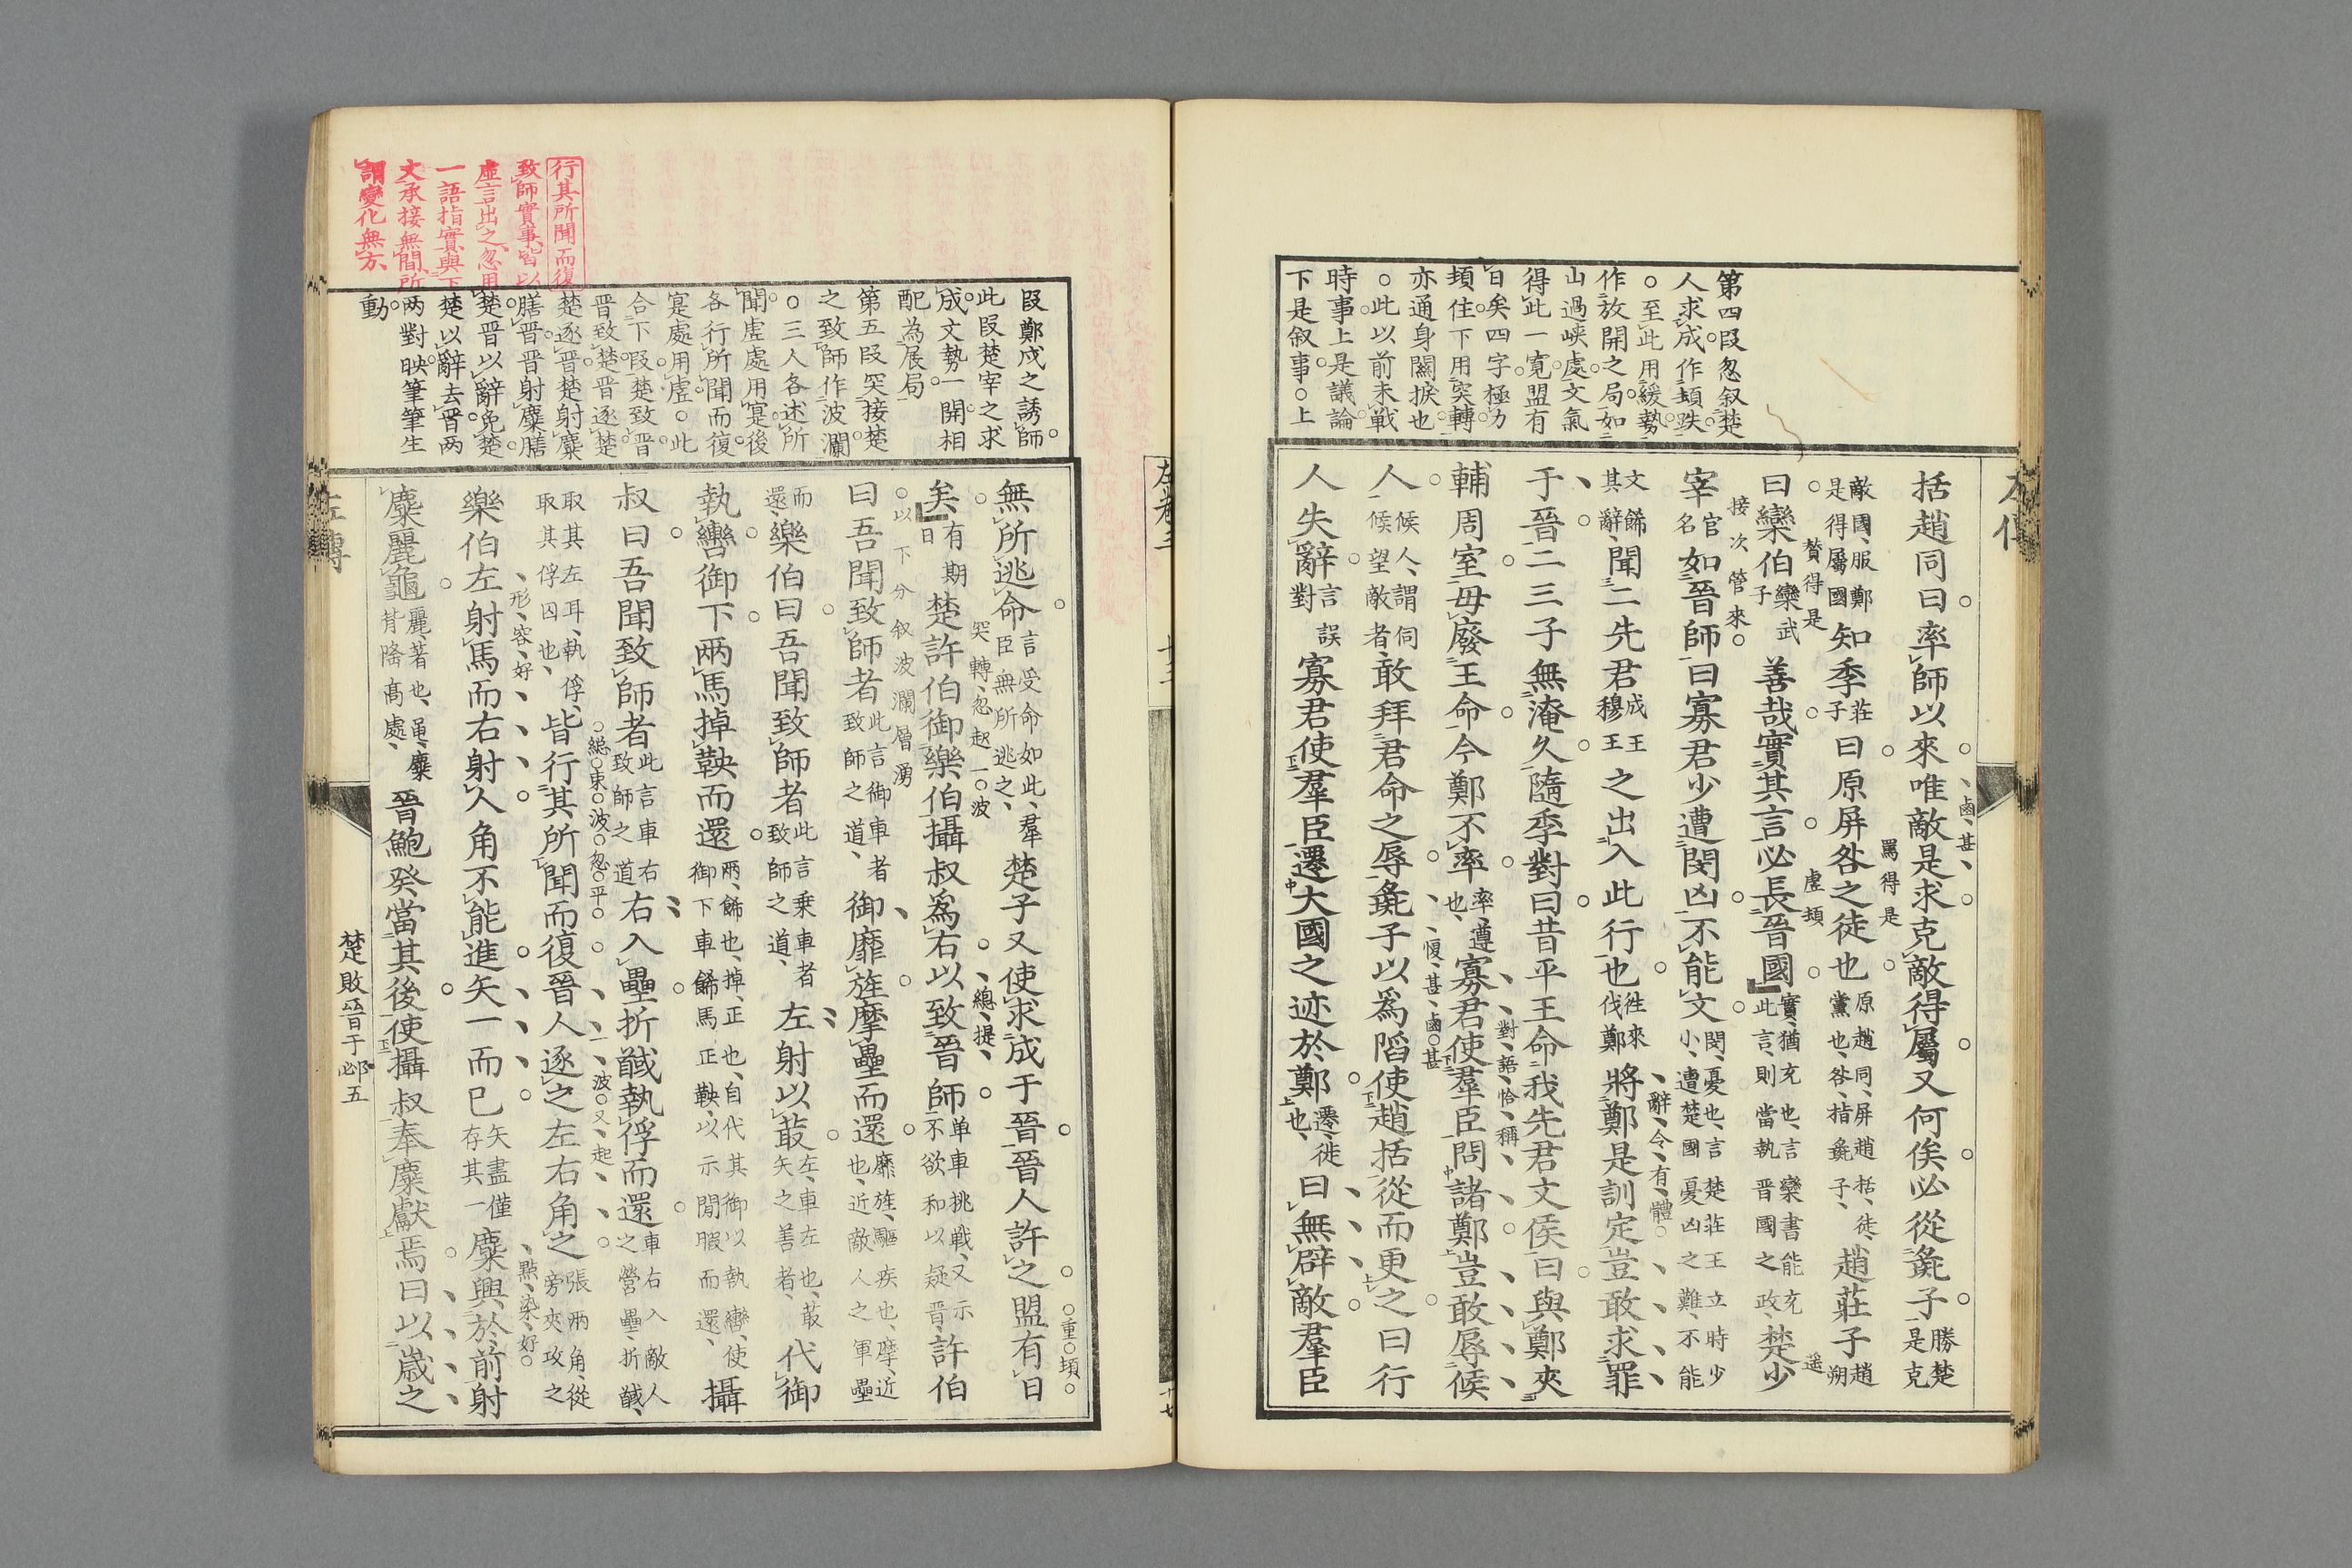 第四段忽叙楚
人求成作頓跌
至此用緩勢
作放開之局如
山過峽處文氣
得此一寛盟有
日矣四字極力
頓住下用突轉
亦通身關捩也
此以前未戰
時事上是議論
下是叙事上
括趙同曰率師以來唯敵是求克敵得屬又何俟必從彘子勝楚是克
敵國服鄭是得屬國知季莊子曰原屏咎之徒也原趙同屏趙括徒黨也咎指彘子趙莊子趙朔
曰欒伯欒武子善哉實其言必長晉國實猶充也言欒書能充此言則當執晉國之政楚少
宰官名如晉師曰寡君少遭閔凶不能文閔憂也言楚莊王立時少小遭楚國憂凶之難不能
文飾其辭聞二先君成王穆王之出入此行也徃來伐鄭將鄭是訓定豈敢求罪
于晉二三子無淹久隨季對曰昔平王命我先君文侯曰與鄭夾
輔周室毋廢王命今鄭不率率遵也寡君使羣臣問諸鄭豈敢辱候
人候人謂伺候望敵者敢拜君命之辱彘子以爲諂使趙括從而更之曰行
人失辭言誤對寡君使羣臣遷大國之迹於鄭遷徙也曰無辟敵羣臣
鹵甚
罵得是
贊得是
虚頓
遥
接次管來
辭令有體
對語恰稱
愎甚鹵甚
左傳
行其所聞而復
致師實事皆以
虚言出之忽用
一語指實與下
文承接無間所
謂變化無方
段鄭成之誘師
此段楚宰之求
成文勢一開相
配為展局
第五段突接楚
之致師作波瀾
三人各述所
聞虚處用寔後
各行所聞而復
寔處用虚此
合下段楚致晉
晉致楚晉逐楚
楚逐晉楚射麋
膳晉晉射麋膳
楚晉以辭免楚
楚以辭去晉两
两對映筆筆生
動
無所逃命言受命如此羣臣無所逃之楚子又使求成于晉晉人許之盟有日
矣有期日楚許伯御樂伯攝叔爲右以致晉師单車挑戰又示不欲和以疑晉許伯
曰吾聞致師者此言御車者致師之道御靡旌摩壘而還靡旌驅疾也摩近也近敵人之軍壘
而還樂伯曰吾聞致師者此言乗車者致師之道左射以菆左車左也菆矢之善者代御
執轡御下兩馬掉鞅而還兩飾也掉正也自代其御以執轡使御下車飾馬正鞅以示閒暇而還攝
叔曰吾聞致師者此言車右致師之道右入壘折馘執俘而還車右入敵人之營壘折馘
取其左耳執俘取其俘囚也皆行其所聞而復晉人逐之左右角之張兩角從旁夾攻之
樂伯左射馬而右射人角不能進矢一而已矢盡僅存其一麋興於前射
麋麗龜麗著也龜麋背隆高處晉鮑癸當其後使攝叔奉麋獻焉曰以歲之
重頓
突轉忽起一波
總提
以下分叙波瀾層湧
總束波忽平
一波又起
形容好
點染好
楚敗晉于邲五